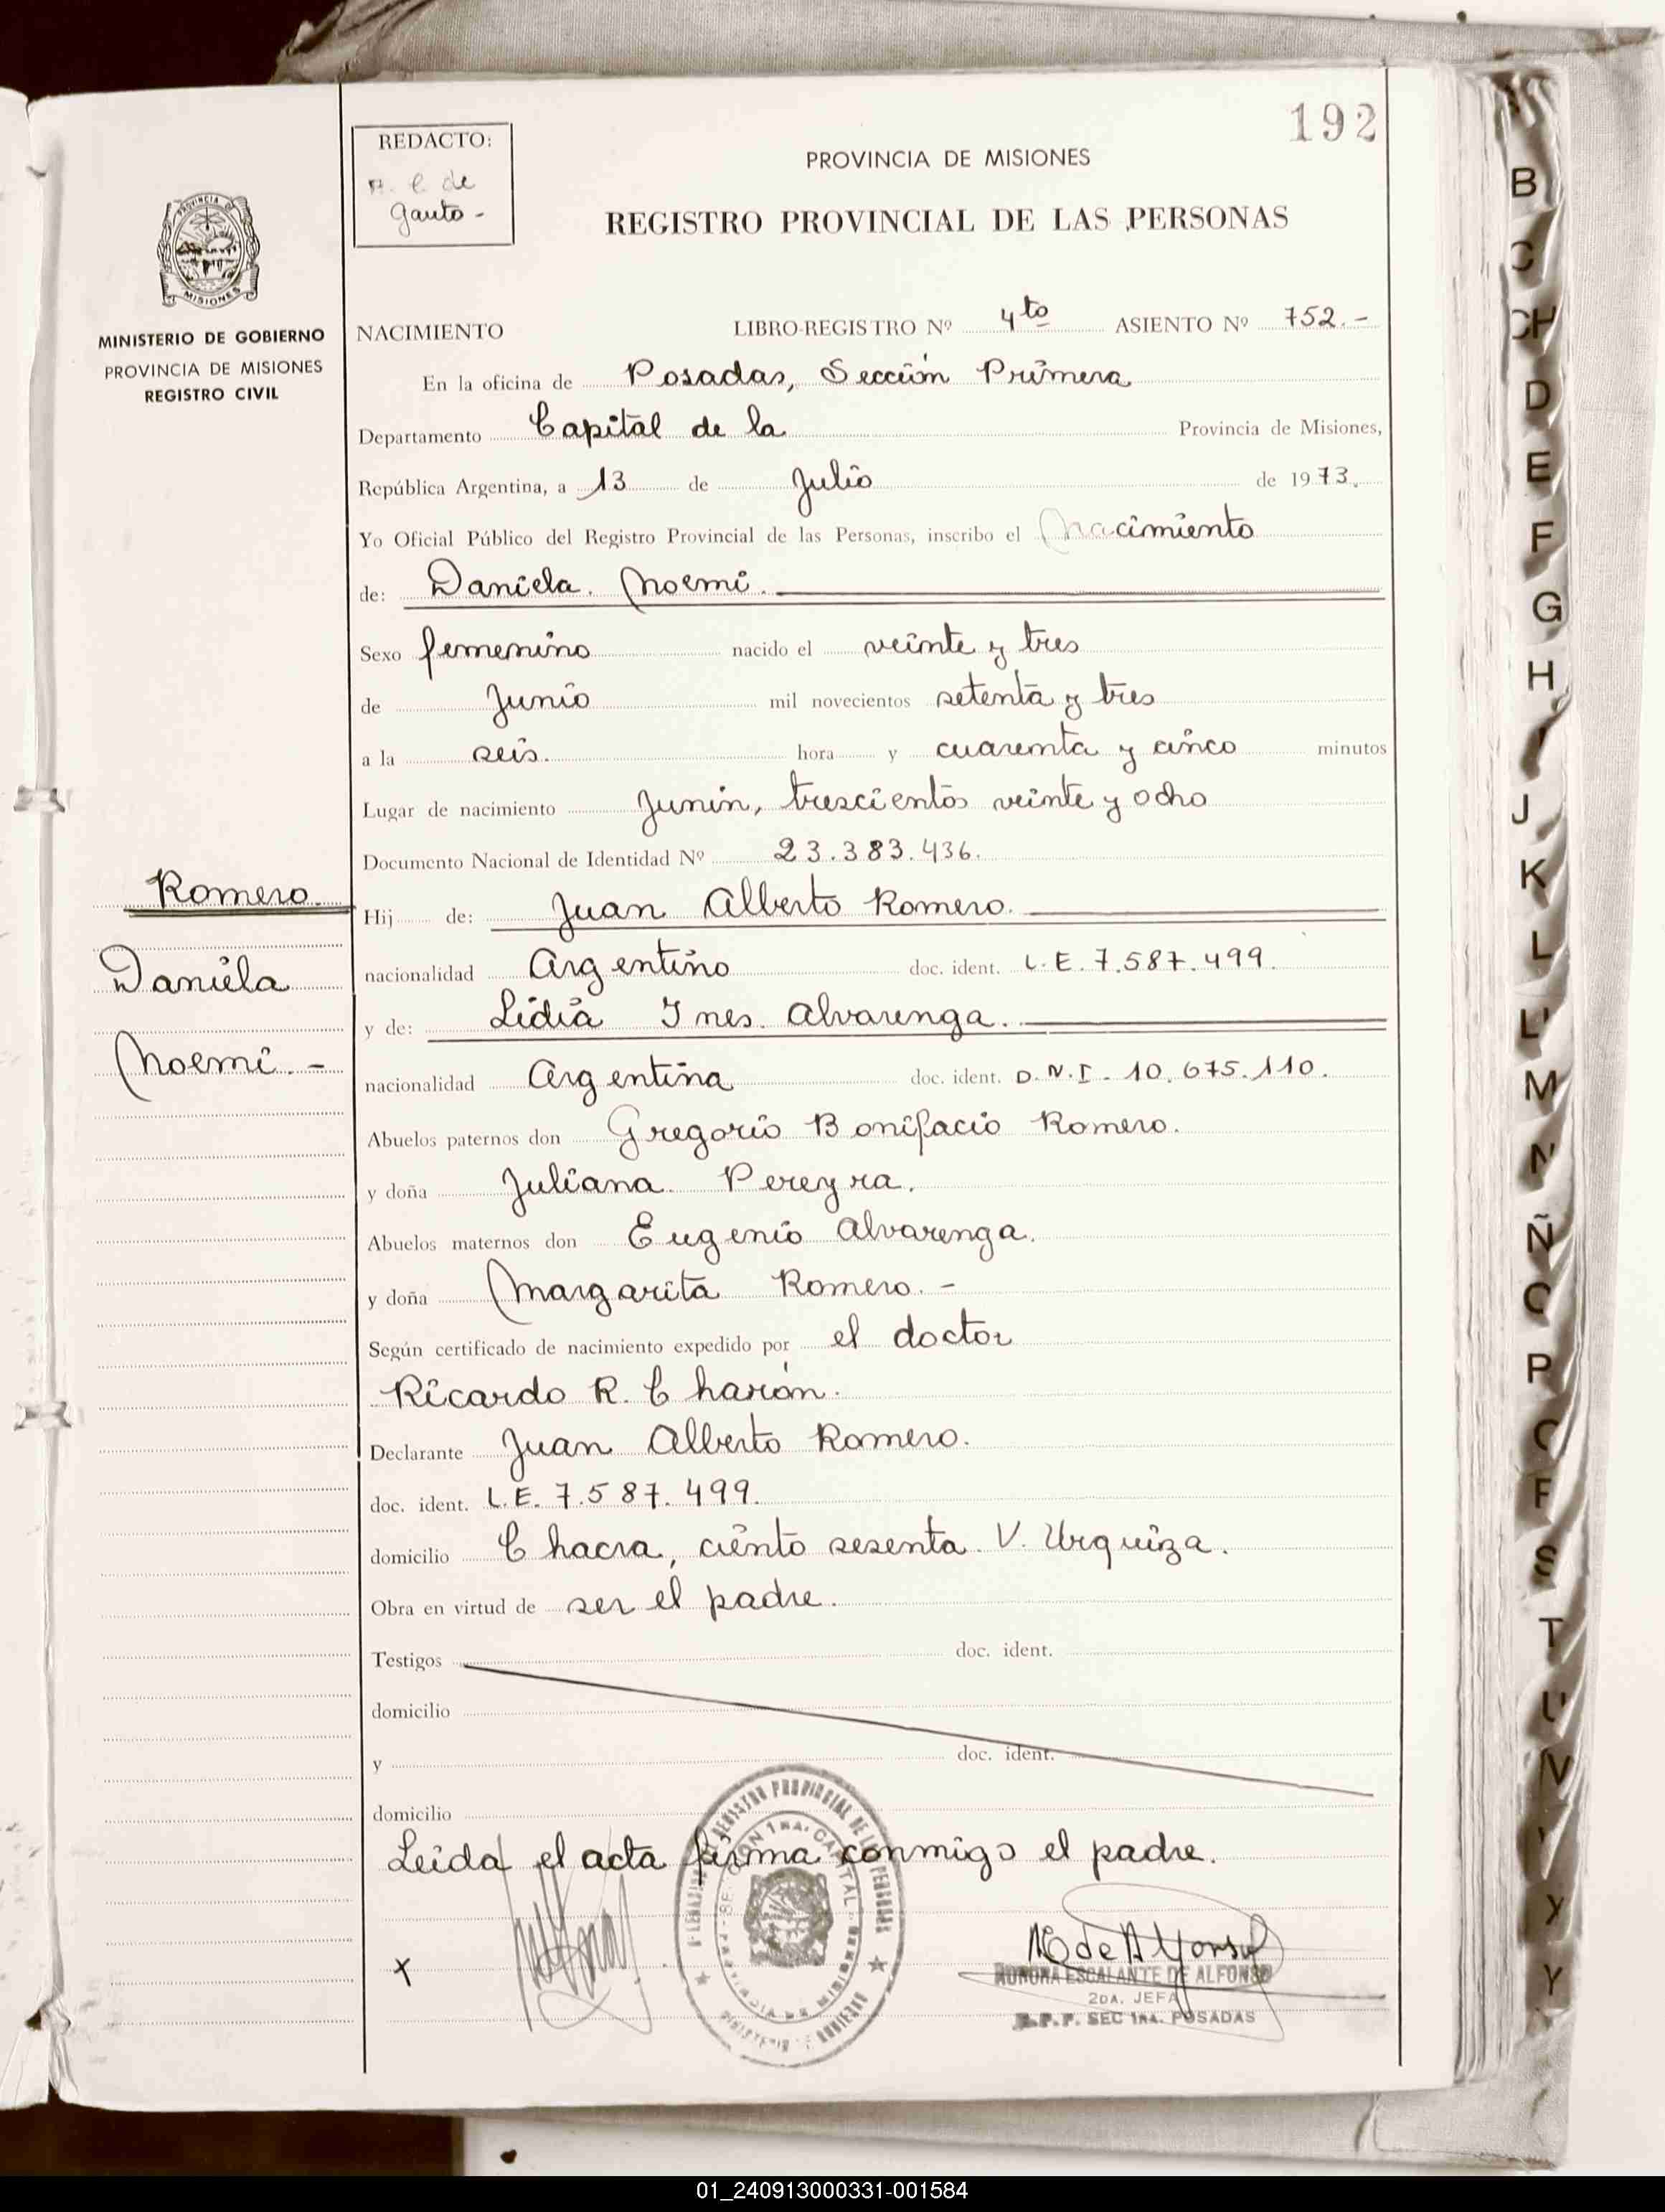 192
REDACTO:
gauto -
PROVINCIA DE MISIONES
REGISTRO PROVINCIAL DE LAS PERSONAS
PROVINCIA
MISIONES
MINISTERIO DE GOBIERNO
PROVINCIA DE MISIONES
REGISTRO CIVIL
NACIMIENTO LIBRO-REGISTRO Nº 4to ASIENTO Nº 752.-
En la oficina de Posadas, Sección Primera
Departamento Capital de la Provincia de Misiones,
República Argentina, a 13 de Julio de 1973.
Yo Oficial Público del Registro Provincial de las Personas, inscribo el Nacimiento
de: Daniela. Noemi.
Sexo femenino nacido el veinte y tres
de Junio mil novecientos setenta y tres
a la seis. hora y cuarenta y cinco minutos
Lugar de nacimiento Junin, trescientos veinte y ocho
Documento Nacional de Identidad Nº 23.383.436.
Romero.
Daniela
Noemi.-
Hij de: Juan Alberto Romero.
nacionalidad Argentino doc. ident. L.E. 7.587.499.
y de: Lidia Ines. Alvarenga.
nacionalidad Argentina doc. ident. D.N.I. 10.675.110.
Abuelos paternos don Gregorio Bonifacio Romero.
y doña Juliana. Pereyra.
Abuelos maternos don Eugenio Alvarenga.
y doña Margarita Romero.-
Según certificado de nacimiento expedido por el doctor
Ricardo R. Charón.
Declarante Juan Alberto Romero.
doc. ident. L.E. 7.587.499.
domicilio Chacra, ciento sesenta. V. Urquiza.
Obra en virtud de ser el padre.
Testigos doc. ident.
domicilio
y doc. ident.
domicilio
Leida el acta firma conmigo el padre.
x
ESCALANTE DE ALFONSO
2DA. JEFA
R.P.P. SEC 1RA. POSADAS
B
C
CH
D
E
F
G
H
I
J
K
L
LL
M
N
Ñ
O
P
Q
R
S
T
U
V
X
Y
01_240913000331-001584